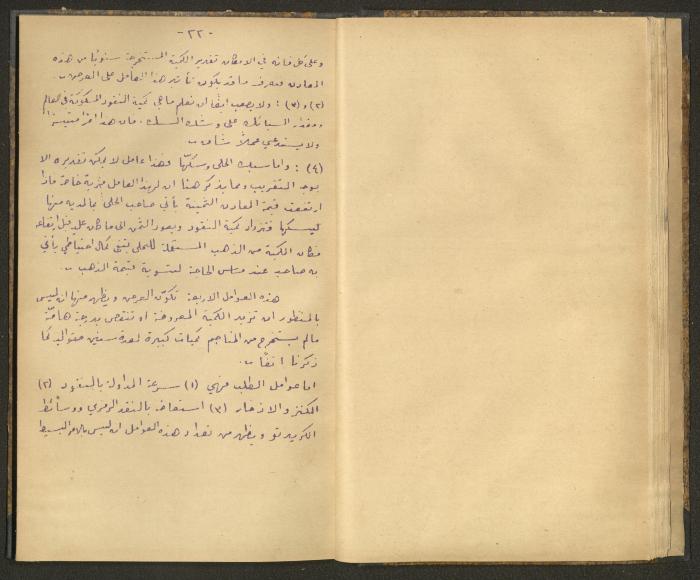 -٢٢-
وعلى كل فانه في الامكان تقدير الكمية المستخرجة سنويًا من هذه
المعادن ومعرفة ما قد يكون تأثير هذا العامل على العرض ..
(٢) و (٣) : ولا يصعب ايضًا ان نعلم ما هي كمية النقود المسكوكة في العالم
ومقدار السبائك على وشك السك . فان هذا
ولا يستدعي عملاً شاقًا ..
(٤) : واما سبك الحلى وسكّها فهذا عامل لا يمكن تقديره الا
بوجه التقريب ومما يذكر هنا ان لهذا العامل مزية خاصة فاذا
ارتفعت قيمة المعادن الثمينة يأتي صاحب الحلى بما لديه منها
ليسكها فتزداد كمية النقود ويعود الثمن الى ما كان عليه قبل ارتفاعه
فكان الكمية من الذهب المستعملة للتحلي تبقى كمال احتياطي يأتي
به صاحبه عند مساس الحاجة لتسوية قيمة الذهب ..
هذه العوامل الاربعة تكوّن العرض ويظهر منها انه ليس
بالمنظور ان تزيد الكمية المعروضة او تنقص بدرجة هامّة
ما لم يستخرج من المناجم كميات كبيرة لمدة سنين متوالية كما
ذكرنا آنفًا ..
اما عوامل الطلب فهي (١) سرعة المداولة بالنقود (٢)
الكنز والادخار (٣) استعاضة بالنقد الرمزي ووسائط
الكريديتو ويظهر من تعداد هذه العوامل انه ليس بالامر البسيط